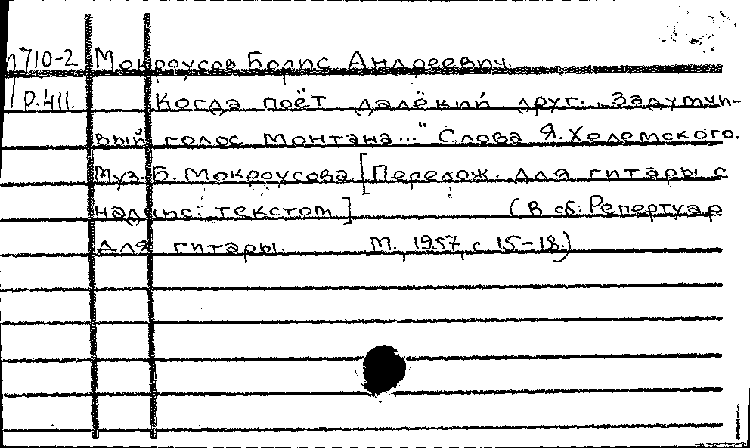 П710-2 Мокроусов Борис Андреевич
Р.411 Когда поёт далёкий друг. „Задумчи-
вый голос Монтана..." Слова Я. Хелемского.
Муз. Б. Мокроусова [Перелож. для гитары с
надпис. текстом] (В сб: Репертуар
для гитары. М., 1957, с 15-18.)